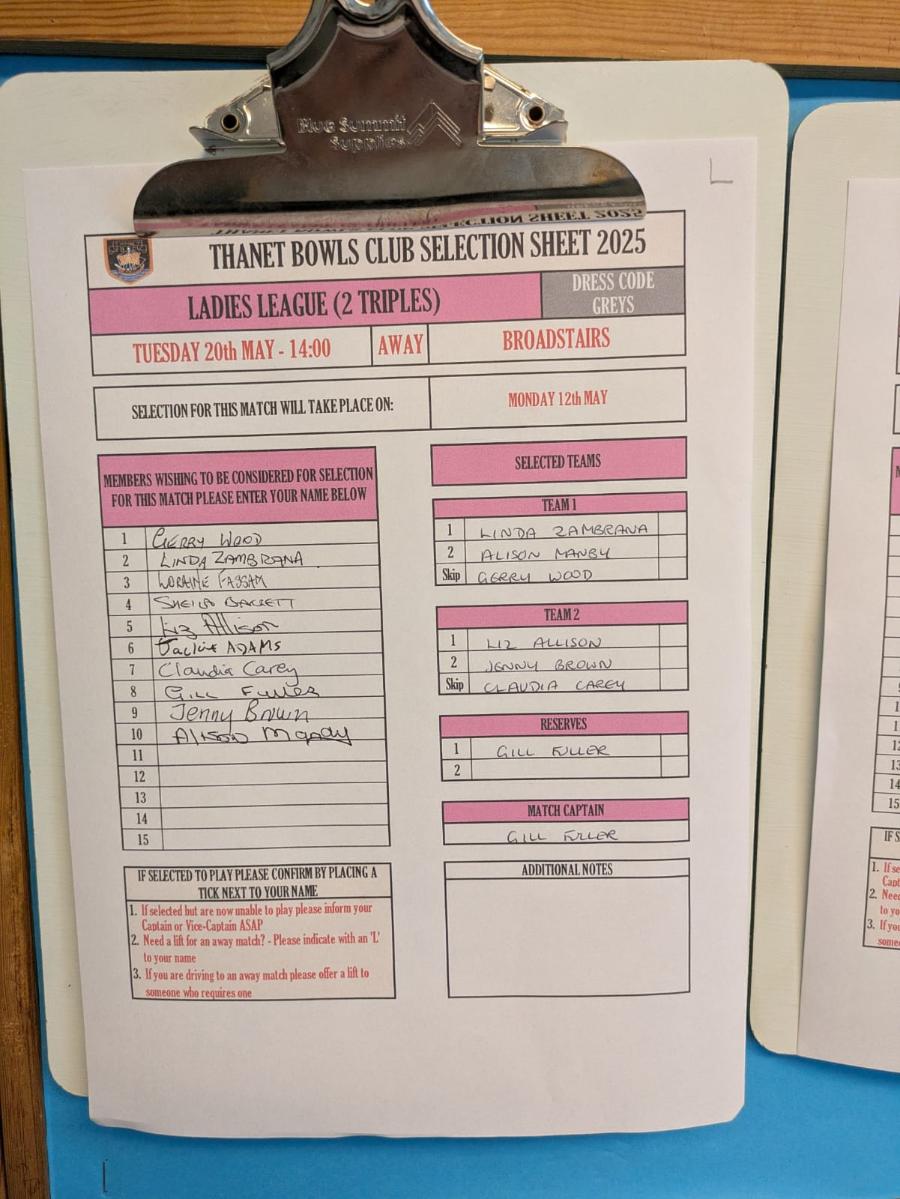 Blue Summit
Supplies
L
THANET BOWLS CLUB SELECTION SHEET 2025
LADIES LEAGUE (2 TRIPLES)
DRESS CODE
GREYS
TUESDAY 20th MAY - 14:00
AWAY
BROADSTAIRS
SELECTION FOR THIS MATCH WILL TAKE PLACE ON:
MONDAY 12th MAY
MEMBERS WISHING TO BE CONSIDERED FOR SELECTION
FOR THIS MATCH PLEASE ENTER YOUR NAME BELOW
1 GERRY WOOD
2 LINDA ZAMBRANA
3 LORAINE FAGGAM
4 SHEILA BACKETT
5 Liz Allison
6 Jackie ADAMS
7 Claudia Carey
8 Gill Fuller
9 Jenny Brown
10 Alison Manby
11
12
13
14
15
SELECTED TEAMS
TEAM 1
1 LINDA ZAMBRANA
2 ALISON MANBY
Skip GERRY WOOD
TEAM 2
1 LIZ ALLISON
2 JENNY BROWN
Skip CLAUDIA CAREY
RESERVES
1 GILL FULLER
2
MATCH CAPTAIN
GILL FULLER
ADDITIONAL NOTES
IF SELECTED TO PLAY PLEASE CONFIRM BY PLACING A
TICK NEXT TO YOUR NAME
1. If selected but are now unable to play please inform your
Captain or Vice-Captain ASAP
2. Need a lift for an away match? - Please indicate with an 'L'
to your name
3. If you are driving to an away match please offer a lift to
someone who requires one